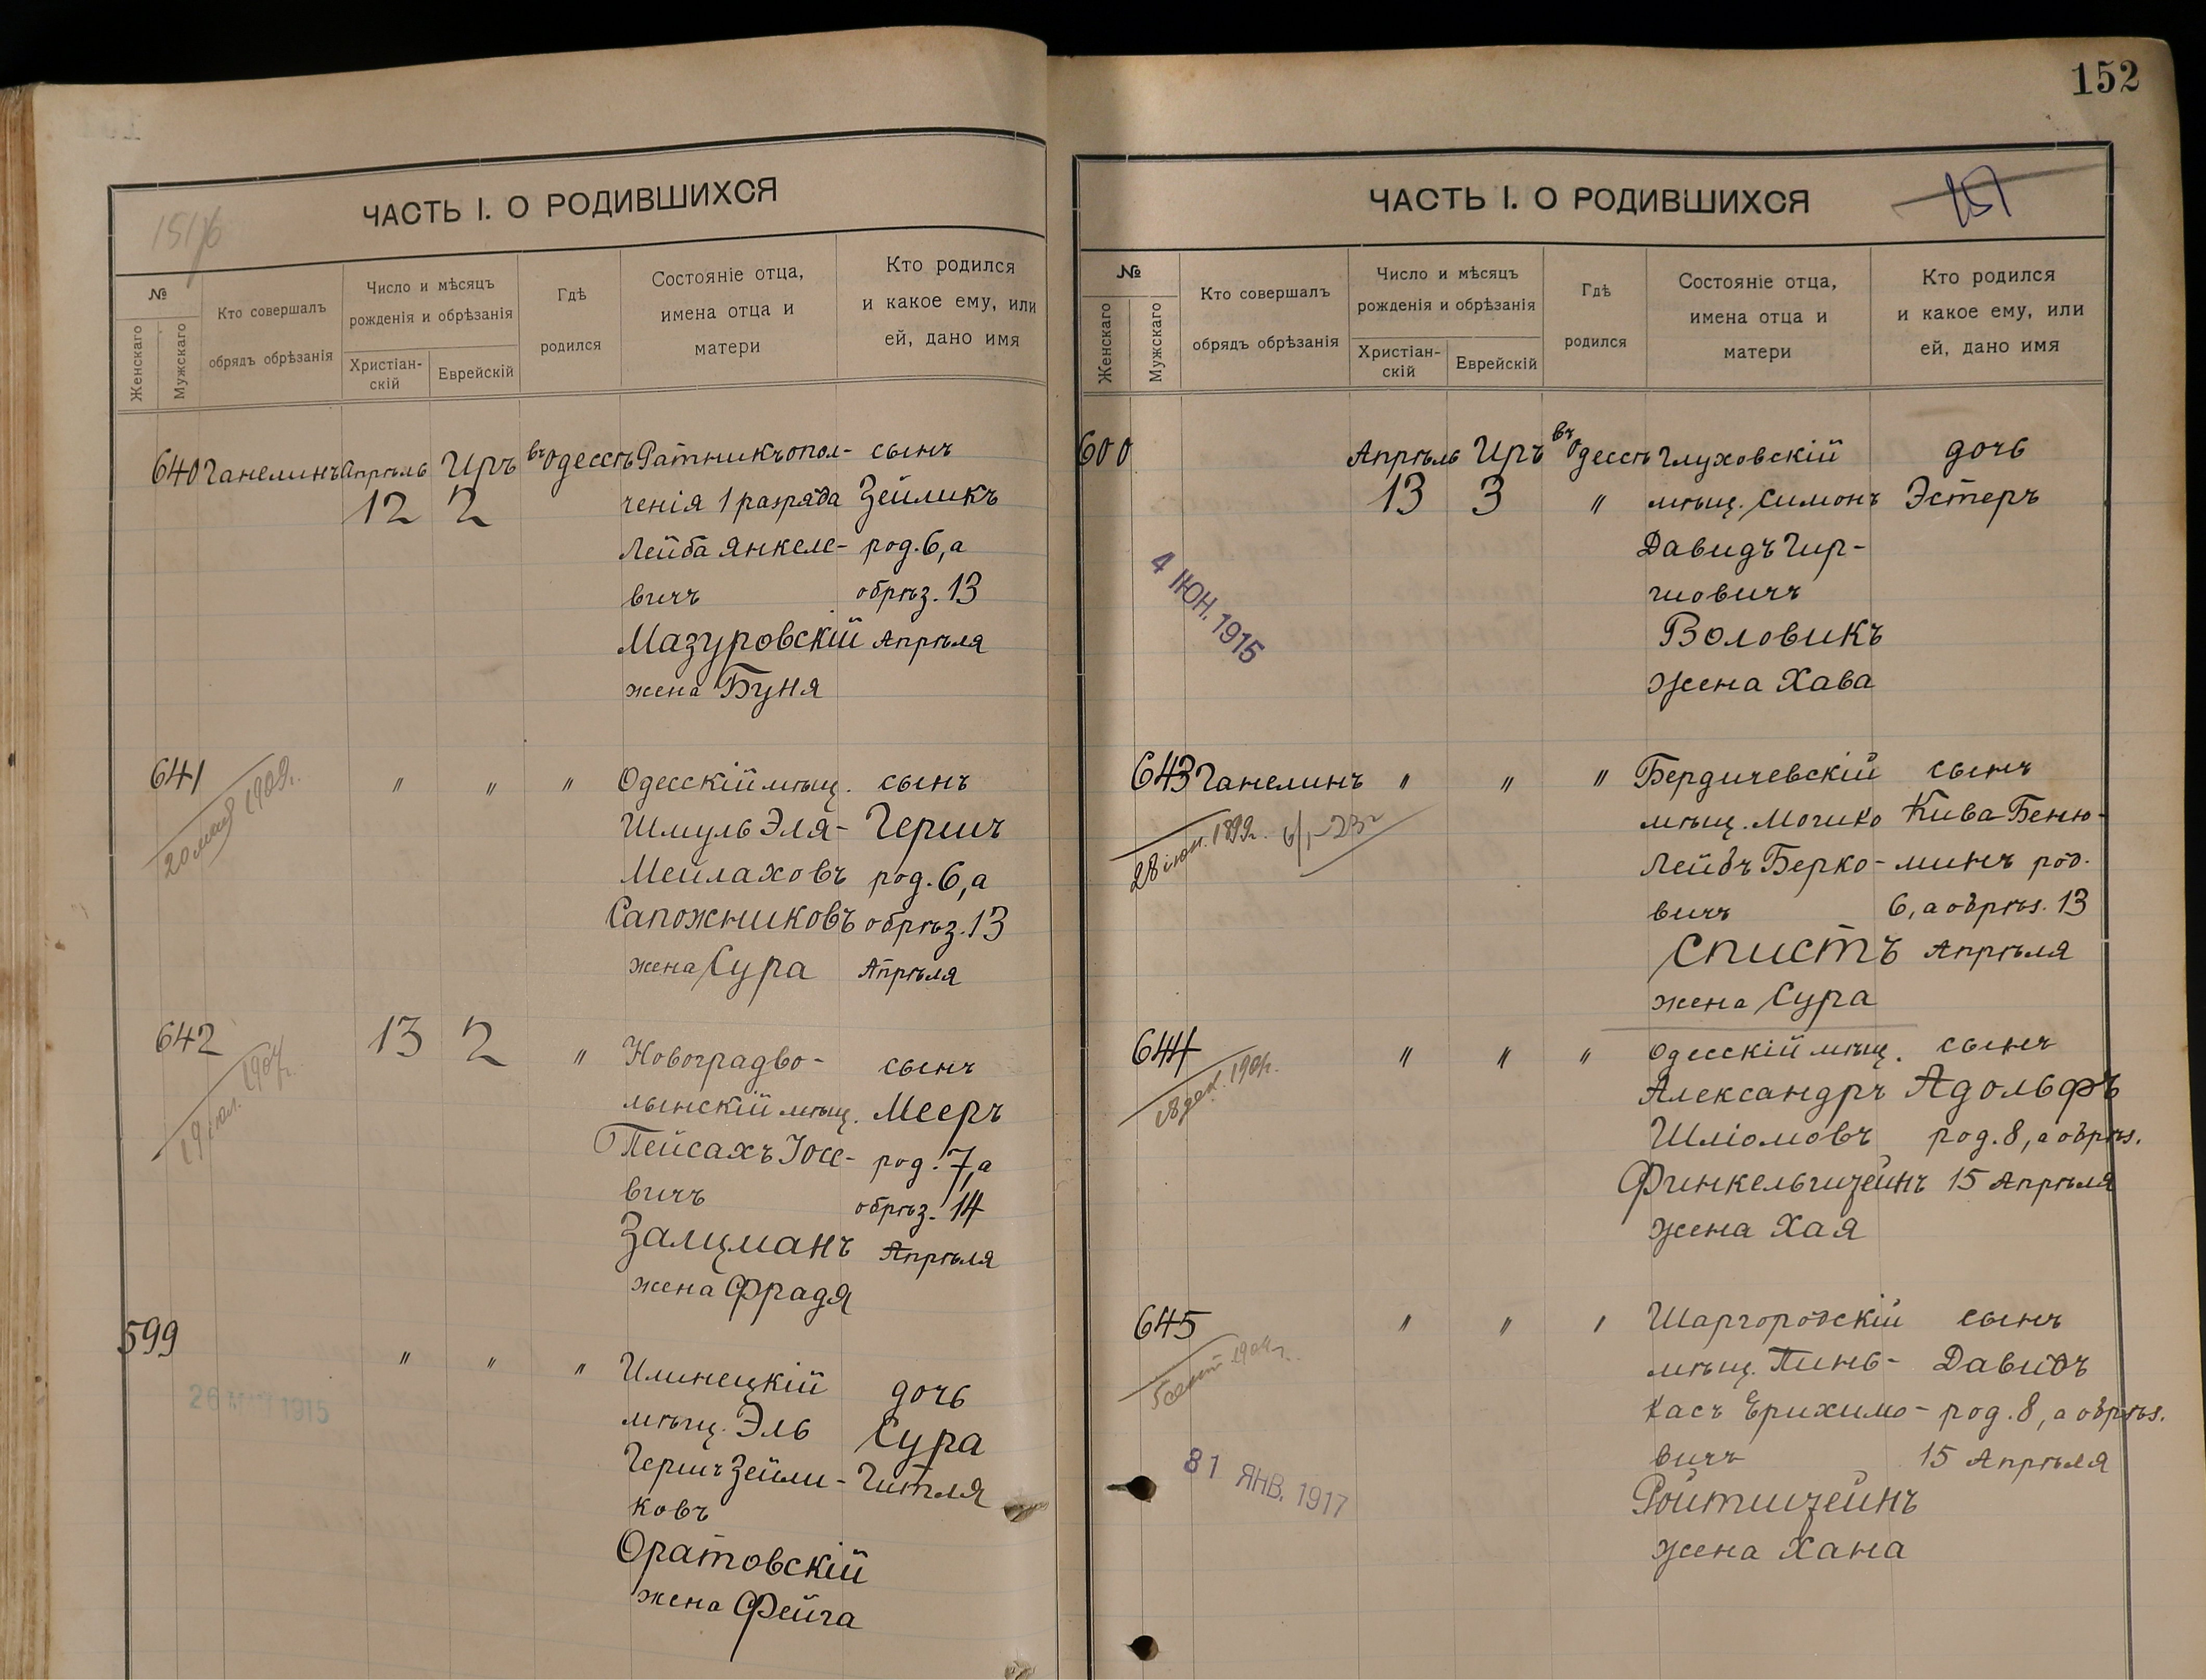 152
ЧАСТЬ I. О РОДИВШИХСЯ
151/б
№
Женскаго
Мужскаго
Кто совершалъ
обрядъ обрѣзанія
Число и мѣсяцъ
рожденія и обрѣзанія
Христіан-
скій
Еврейскій
Гдѣ
родился
Состояніе отца,
имена отца и
матери
Кто родился
и какое ему, или
ей, дано имя
640 Ганелинъ Апрѣль Иръ въ Одессѣ Ратникъ опол- сынъ
12 2 ченія 1 разряда Зейликъ
Лейба Янкеле- род. 6, а
вичъ обрѣз. 13
Мазуровскій Апрѣля
жена Буня
641 " " " Одесскій мѣщ. сынъ
20 мая 1909г.
Шмуль Эля- Гершъ
Мейлаховъ род. 6, а
Сапожниковъ обрѣз. 13
жена Сура Апрѣля
642 13 2 " Новоградво- сынъ
лынскій мѣщ. Мееръ
Пейсахъ Іосе- род. 7, а
вичъ обрѣз. 14
Залцманъ Апрѣля
жена Фрадя
599 " " " Илинецкій дочь
26 МАЯ 1915
мѣщ. Эль Сура
Гершъ Зейли- Гитля
ковъ
Оратовскій
жена Фейга
ЧАСТЬ I. О РОДИВШИХСЯ
151
№
Женскаго
Мужскаго
Кто совершалъ
обрядъ обрѣзанія
Число и мѣсяцъ
рожденія и обрѣзанія
Христіан-
скій
Еврейскій
Гдѣ
родился
Состояніе отца,
имена отца и
матери
Кто родился
и какое ему, или
ей, дано имя
600 Апрѣль Иръ въ Одессѣ Глуховскій дочь
13 3 " мѣщ. Симонъ Эстеръ
4 ІЮН. 1915
Давидъ Гир-
шовичъ
Воловикъ
жена Хава
643 Ганелинъ " " " Бердичевскій сынъ
28 іюн. 1899г.
мѣщ. Мошко Кива Беню-
Лейбъ Берко- минъ род.
вичъ 6, а обрѣз. 13
Спистъ Апрѣля
жена Сура
644 " " " Одесскій мѣщ. сынъ
28 дек. 1904г.
Александръ Адольфъ
Шліомовъ род. 8, а обрѣз.
Финкельштейнъ 15 Апрѣля
жена Хая
645 " " " Шаргородскій сынъ
5 сент. 1904г.
мѣщ. Пинь- Давидъ
касъ Ерихимо- род. 8, а обрѣз.
вичъ 15 Апрѣля
31 ЯНВ. 1917
Ройтштейнъ
жена Хана